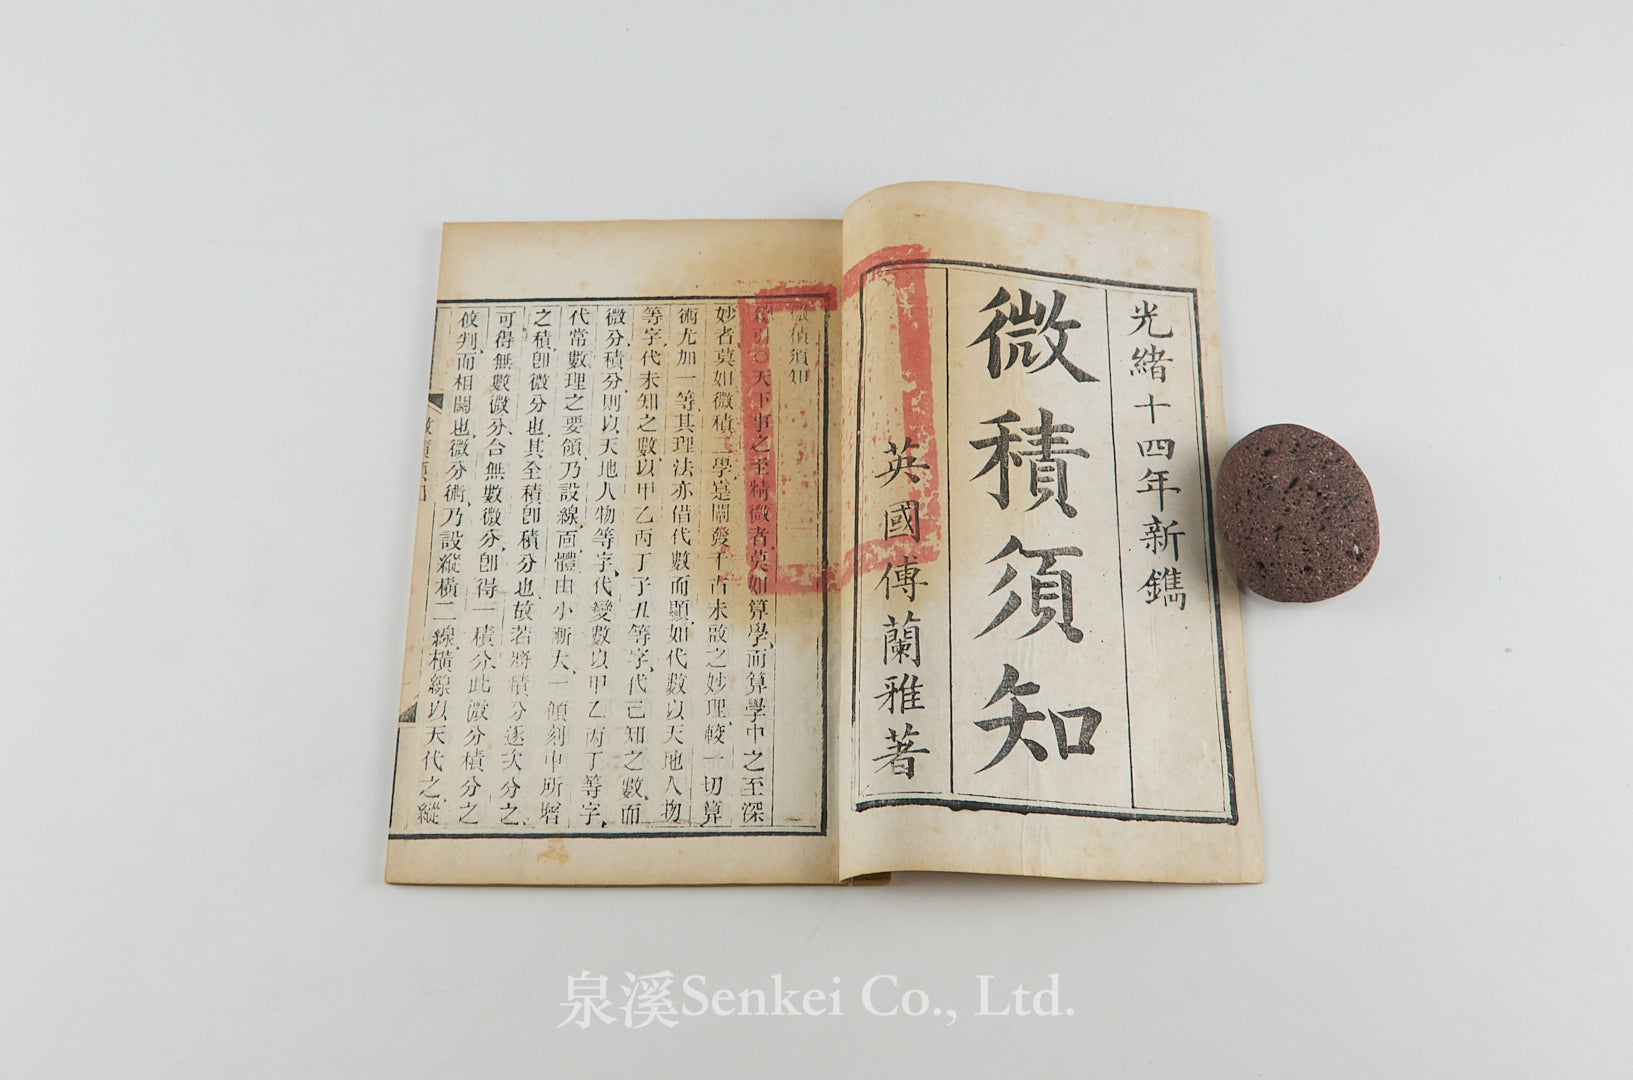 光緒十四年新鐫
微積須知
英國傅蘭雅著
微積須知
總引○天下事之至精微者、莫如算學、而算學中之至深
妙者、莫如微積二學、寔開發千古未啟之妙理、較一切算
術尤加一等、其理法亦借代數而顯、如代數以天地人物
等字、代未知之數、以甲乙丙丁子丑等字、代已知之數、而
微分積分、則以天地人物等字、代變數、以甲乙丙丁等字、
代常數、理之要領、乃設線、面、體、由小漸大、一傾刻中所增
之積、卽微分也、其至積卽積分也、故若將積分逐次分之、
可得無數微分、合無數微分、卽得一積分、此微分積分之
攸判、而相關也、微分術、乃設縱橫二線、橫線以天代之、縱
微積須知
泉溪Senkei Co., Ltd.